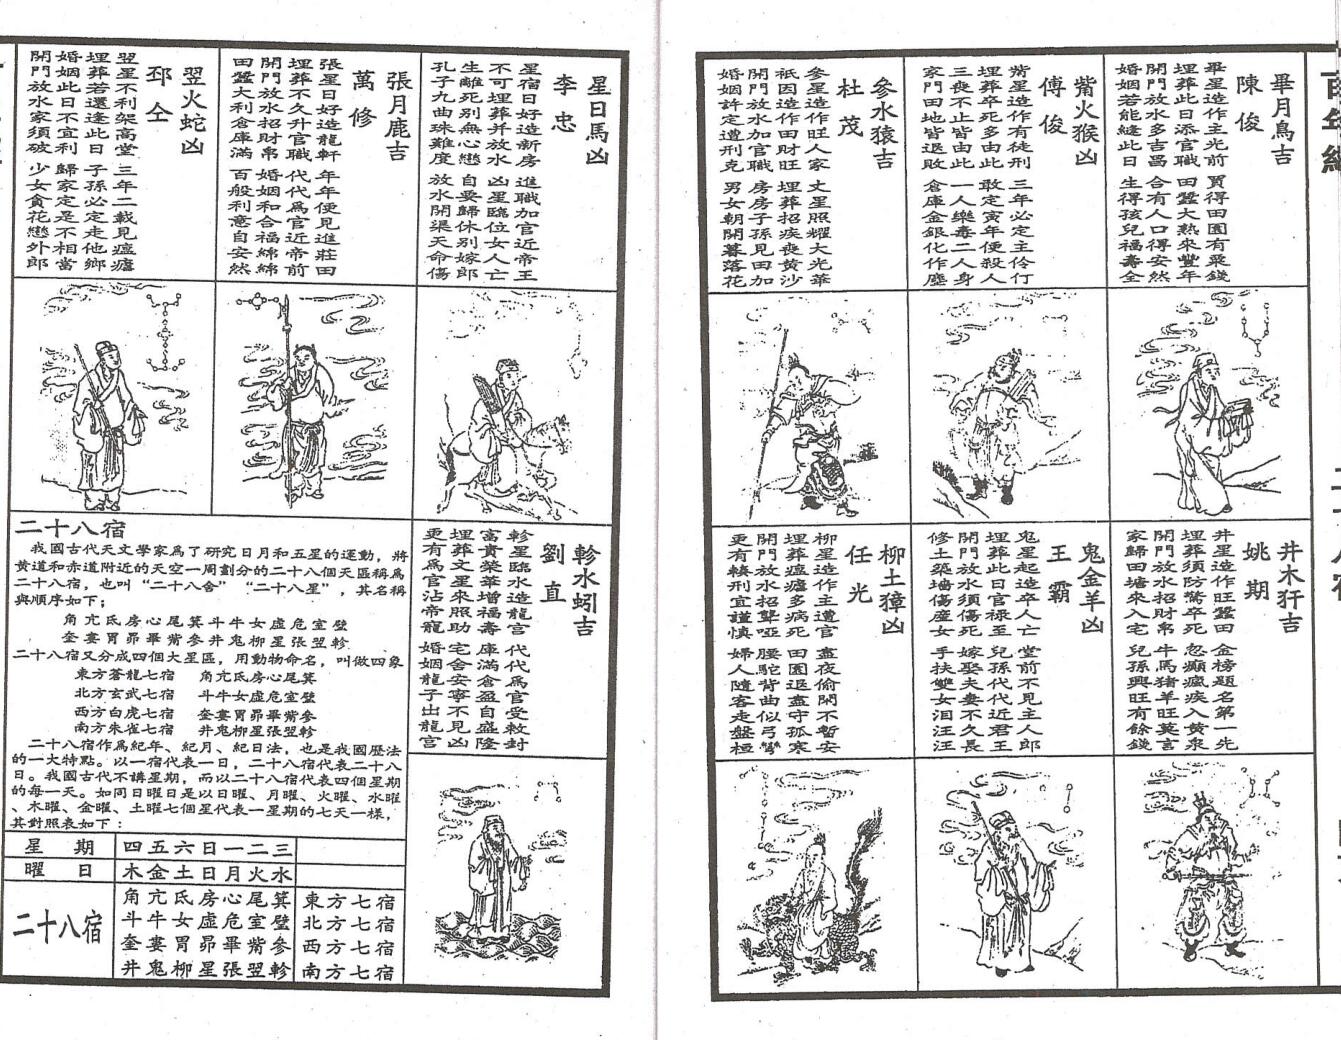 百年經
二十八宿
畢月烏吉
陳俊
畢星造作主光前 買得田園有粟錢
埋葬此日添官職 田蠶大熟來豐年
開門放水多吉昌 合有人口得安然
婚姻若能縫此日 生得孩兒福壽全
觜火猴凶
傅俊
觜星造作有徒刑 三年必定主伶仃
埋葬卒死多由此 敢定寅年便殺人
三喪不止皆由此 一人樂毒二人身
家門田地皆退敗 倉庫金銀化作塵
參水猿吉
杜茂
參星造作旺人家 文星照耀大光華
祇因造作田財旺 埋葬招疾喪黄沙
開門放水加官職 房房子孫見田加
婚姻許定遭刑克 男女朝開暮落花
井木犴吉
姚期
井星造作旺蠶田 金榜題名第一先
埋葬須防驚卒死 忽癲瘋疾入黃泉
開門放水招財帛 牛馬猪羊旺莫言
家歸田塘來入宅 兒孫興旺有餘錢
鬼金羊凶
王霸
鬼星起造卒人亡 堂前不見主人郎
埋葬此日官祿至 兒孫代代近君王
開門放水須傷死 嫁娶夫妻不久長
修土築墻傷產女 手扶雙女泪汪汪
柳土獐凶
任光
柳星造作主遭官 盡夜偷閉不暫安
埋葬瘟㾮多病死 田園退盡守孤寒
開門放水招聾啞 腰駝背曲似弓彎
更有棒刑宜謹慎 婦人隨客走盤桓
星日馬凶
李忠
星宿日好造新房 進職加官近帝王
不可埋葬并放水 凶星臨位女人亡
生離死別無心戀 自要歸休別嫁郎
孔子九曲珠難度 放水開渠天命傷
張月鹿吉
萬修
張星日好造龍軒 年年便見進莊田
埋葬不久升官職 代代爲官近帝前
開門放水招財帛 婚姻和合福綿綿
田蠶大利倉庫滿 百般利意自安然
翌火蛇凶
邳仝
翌星不利架高堂 三年二載見瘟㾮
埋葬若還逢此日 子孫必定走他鄉
婚姻此日不宜利 歸家定是不相當
開門放水家須破 少女貪花戀外郎
軫水蚓吉
劉直
軫星臨水造龍宮 代代爲官受敕封
富貴榮華增福壽 庫滿倉盈自盛隆
埋葬文星來照助 宅舍安寧不見凶
更有爲官沾帝龍 婚姻龍子出龍宮
二十八宿
我國古代天文學家爲了研究日月和五星的運動，將
黄道和赤道附近的天空一周劃分的二十八個天區稱爲
二十八宿，也叫“二十八舍”“二十八星”，其名稱
與順序如下；
角亢氐房心尾箕斗牛女虛危室壁
奎婁胃昴畢觜參井鬼柳星張翌軫
二十八宿又分成四個大星區，用動物命名，叫做四象
東方蒼龍七宿 角亢氐房心尾箕
北方玄武七宿 斗牛女虛危室壁
西方白虎七宿 奎婁胃昴畢觜參
南方朱雀七宿 井鬼柳星張翌軫
二十八宿作爲紀年、紀月、紀日法，也是我國曆法
的一大特點。以一宿代表一日，二十八宿代表二十八
日。我國古代不講星期，而以二十八宿代表四個星期
的每一天。如同日曜日是以日曜、月曜、火曜、水曜
、木曜、金曜、土曜七個星代表一星期的七天一樣，
其對照表如下：
星期 四五六日一二三
曜日 木金土日月火水
二十八宿
角亢氐房心尾箕 東方七宿
斗牛女虛危室壁 北方七宿
奎婁胃昴畢觜參 西方七宿
井鬼柳星張翌軫 南方七宿